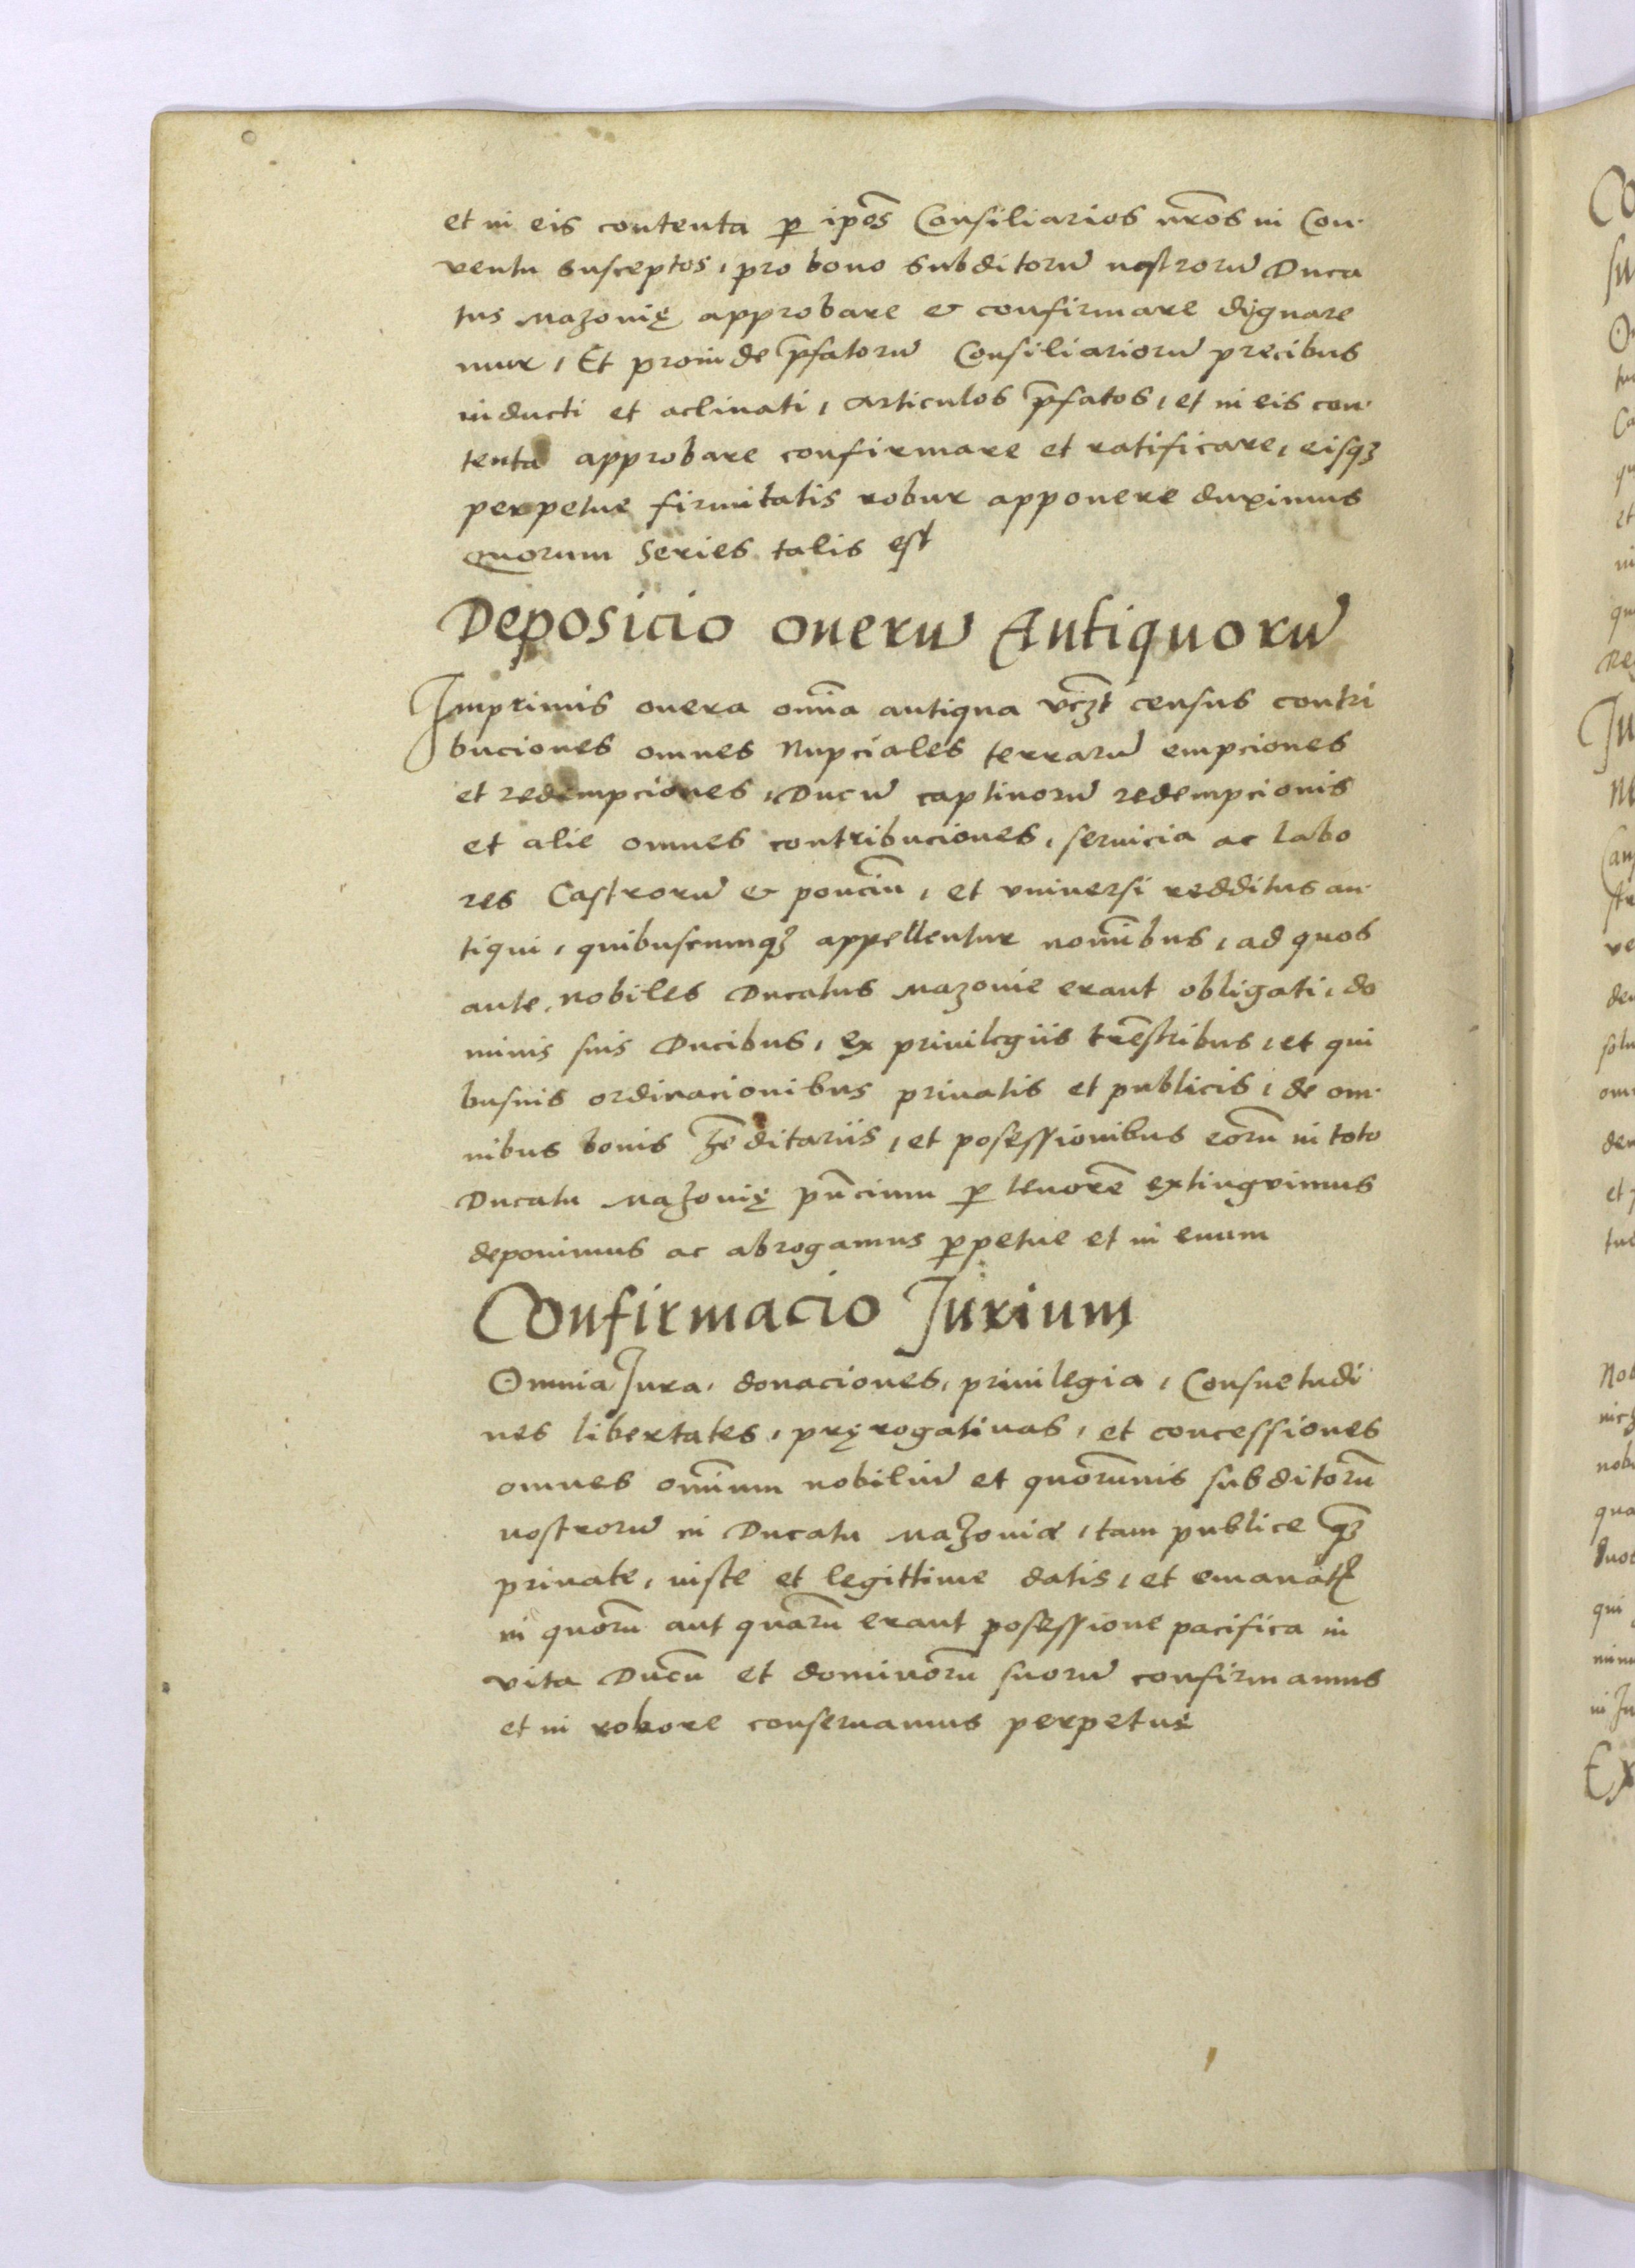 et in eis contenta ꝑ ipōs Consiliarios nr̄os in Con·
ventu susceptos, pro bono subditorū nostrorū Duca
tus Mazouię approbare & confirmare dignare
mur, Et proinde p̄fatorū Consiliariorū precibus
inducti et aclinati, articulos p̄fatos, et in eis con·
tenta approbare confirmare et ratificare, eisqꝫ
perpetue firmitatis robur apponere duximus
quorum series talis est
Deposicio onerū Antiquorū
Imprimis onera oīa antiqua vcꝫt census contri
buciones omnes Nupciales terrarū empciones
et redempciones, Ducū captiuorū redempcionis
et alie omnes contribuciones, seruicia ac labo
res Castrorū & ponciū, et vniuersi redditus an·
tiqui, quibuscumqꝫ appellentur noīnibus, ad quos
ante, nobiles Ducatus Mazouie erant obligati, do
minis suis Ducibus, ex priuilegiis trēstribus, et qui
busuis ordinacionibus priuatis et publicis, de om·
nibus bonis hēditariis, et posessionibus eorū in toto
Ducatu Mazouię pn̄cium ꝑ tenorē extingvimus
deponimus ac abrogamus ꝑpetue et in euum
Confirmacio Jurium
Omnia Jura, donaciones, priuilegia, Consuetudi
nes libertates, pręrogatiuas, et concessiones
omnes om̄ium nobiliū et quorumuis subditorū
nostrorū in Ducatu Mazouiæ, tam publice qꝫ
priuate, iuste et legittime datis, et emanatꝭ
in quorū aut quarū erant posessione pacifica in
vita Ducū et dominorū suorū confirmamus
et in robore conseruamus perpetue